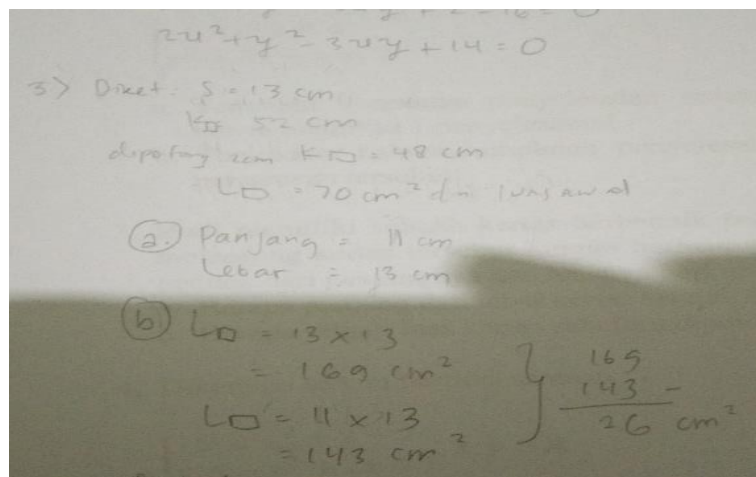 2x² + y² - 3xy + 14 = 0
3> Diket : S = 13 cm
K□ 52 cm
dipotong 2cm K▭ = 48 cm
L▭ = 70 cm² dr luas awal
(a.) Panjang = 11 cm
Lebar = 13 cm
(b) L□ = 13 x 13
= 169 cm²
L▭ = 11 x 13
= 143 cm²
} 169
143 -
26 cm²